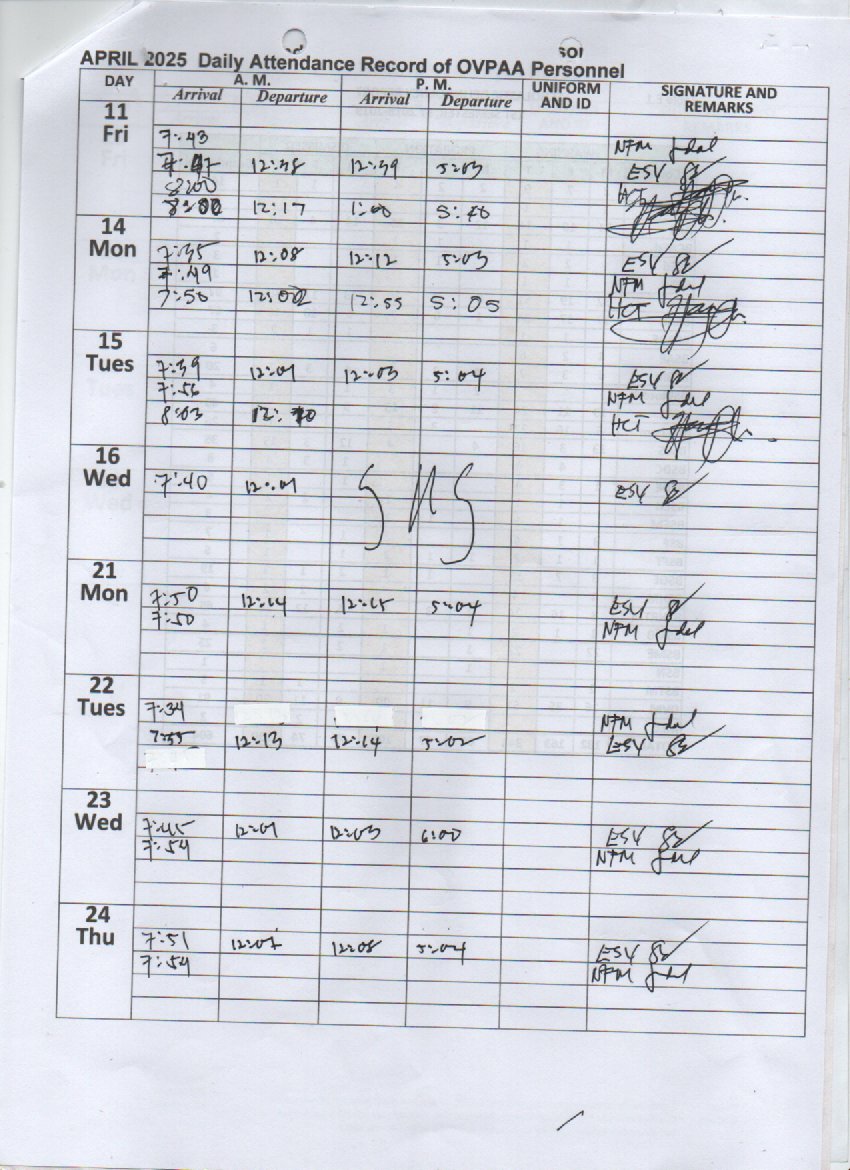 APRIL 2025 Daily Attendance Record of OVPAA Personnel
DAY A. M. P. M. UNIFORM AND ID SIGNATURE AND REMARKS
Arrival Departure Arrival Departure
11 Fri
7:43 NFM
7:47 12:38 12:39 5:03 ESV
8:00 HCT
8:00 12:17
14 Mon
7:35 12:08 12:12 5:03 ESV
7:49 NFM
7:50 12:02 12:55 5:05 HCT
15 Tues
7:39 12:01 12:03 5:04 ESV
7:56 NFM
8:03 12:10 HCT
16 Wed
7:40 12:01 ESV
21 Mon
7:50 12:14 12:15 5:04 ESV
7:50 NFM
22 Tues
7:34 NFM
7:55 12:13 12:14 5:02 ESV
23 Wed
7:45 12:01 12:03 6:00 ESV
7:54 NFM
24 Thu
7:51 12:07 12:08 5:04 ESV
7:54 NFM